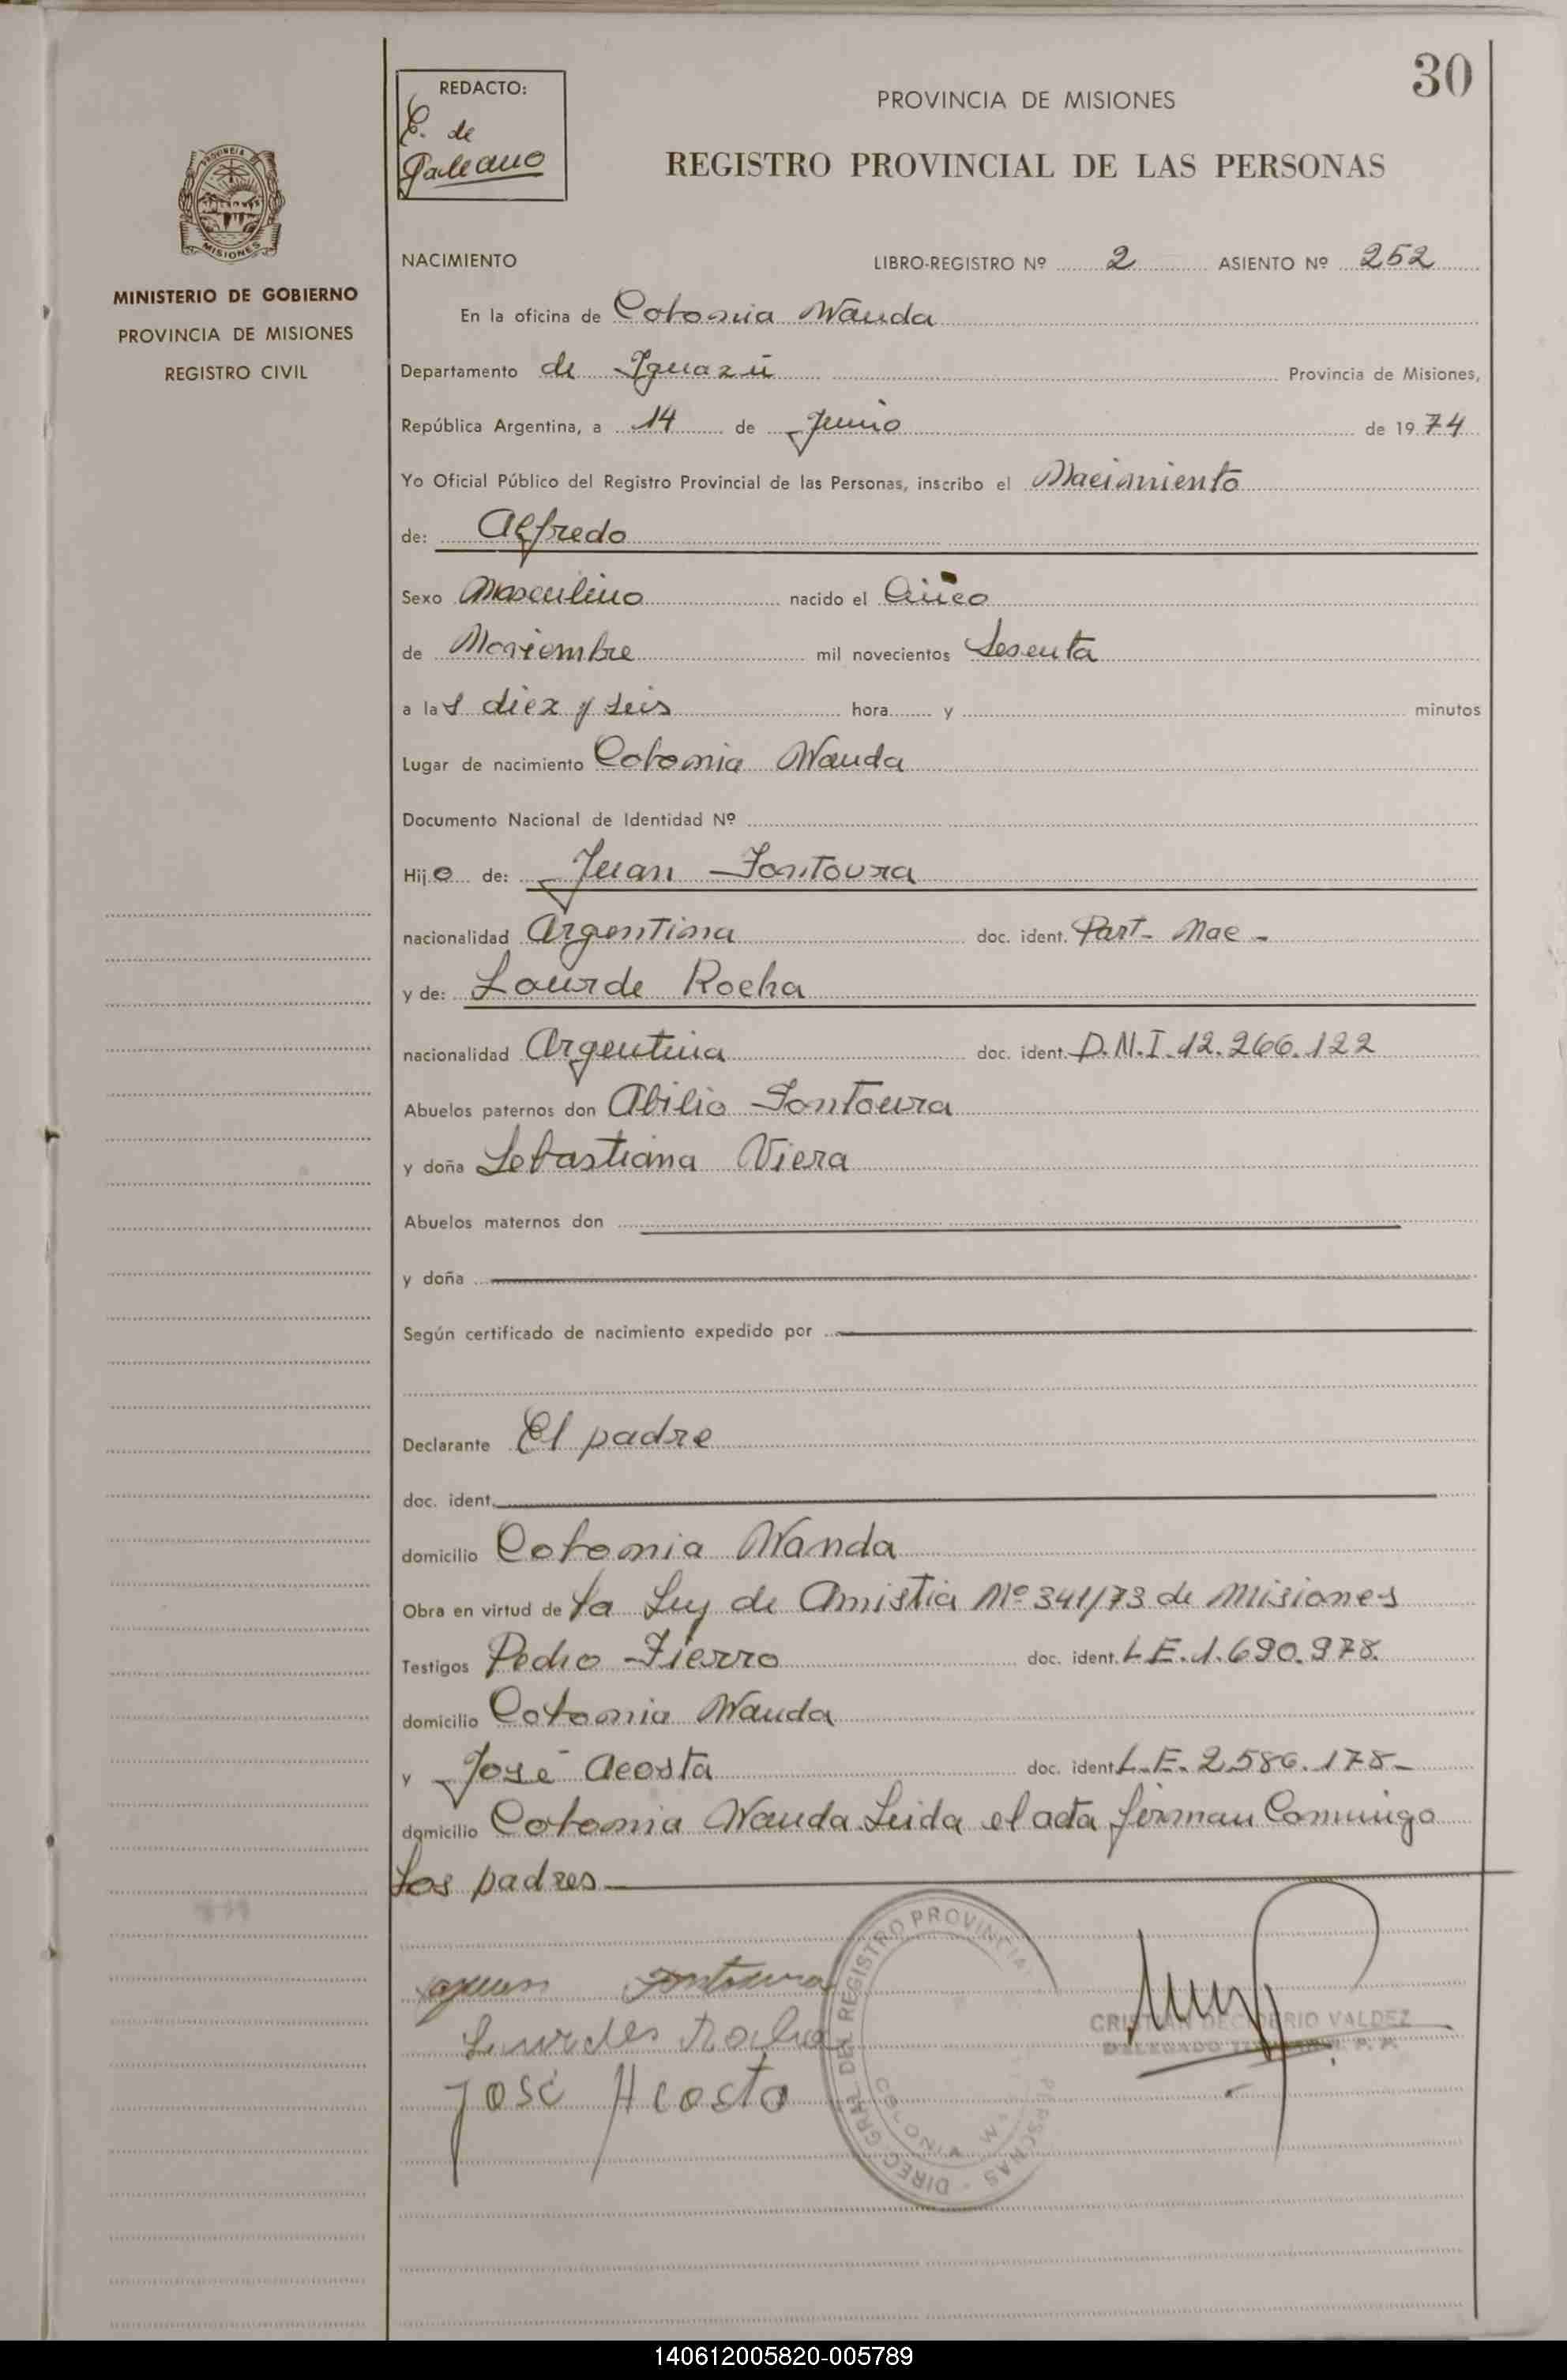 30
REDACTO:
E. de
Galeano
PROVINCIA DE MISIONES
REGISTRO PROVINCIAL DE LAS PERSONAS
PROVINCIA DE
MISIONES
MINISTERIO DE GOBIERNO
PROVINCIA DE MISIONES
REGISTRO CIVIL
NACIMIENTO LIBRO-REGISTRO Nº 2 ASIENTO Nº 252
En la oficina de Colonia Wanda
Departamento de Iguazú Provincia de Misiones,
República Argentina, a 14 de Junio de 1974
Yo Oficial Público del Registro Provincial de las Personas, inscribo el Nacimiento
de: Alfredo
Sexo Masculino nacido el
de Noviembre mil novecientos Sesenta
a las diez y seis hora y minutos
Lugar de nacimiento Colonia Wanda
Documento Nacional de Identidad Nº
Hijo de: Juan Fontoura
nacionalidad Argentina doc. ident. Part- Nac-
y de: Lourde Rocha
nacionalidad Argentina doc. ident. D.N.I. 12.266.122
Abuelos paternos don Abilio Fontoura
y doña Sebastiana Viera
Abuelos maternos don
y doña
Según certificado de nacimiento expedido por
Declarante El padre
doc. ident.
domicilio Colonia Wanda
Obra en virtud de la Ley de Amistia Nº 341/73 de Misiones
Testigos Pedro Fierro doc. ident. L.E. 1.690.978.
domicilio Colonia Wanda
y José Acosta doc. ident. L.E. 2.586.178-
domicilio Colonia Wanda Leida el acta firman Conmigo
los padres
Juan Fontoura
Lourdes Rocha
José Acosta
DIREC. GRAL. DEL REGISTRO PROVINCIAL PERSONAS
COLONIA W
CRISTIAN DECIDERIO VALDEZ
DELEGADO
140612005820-005789